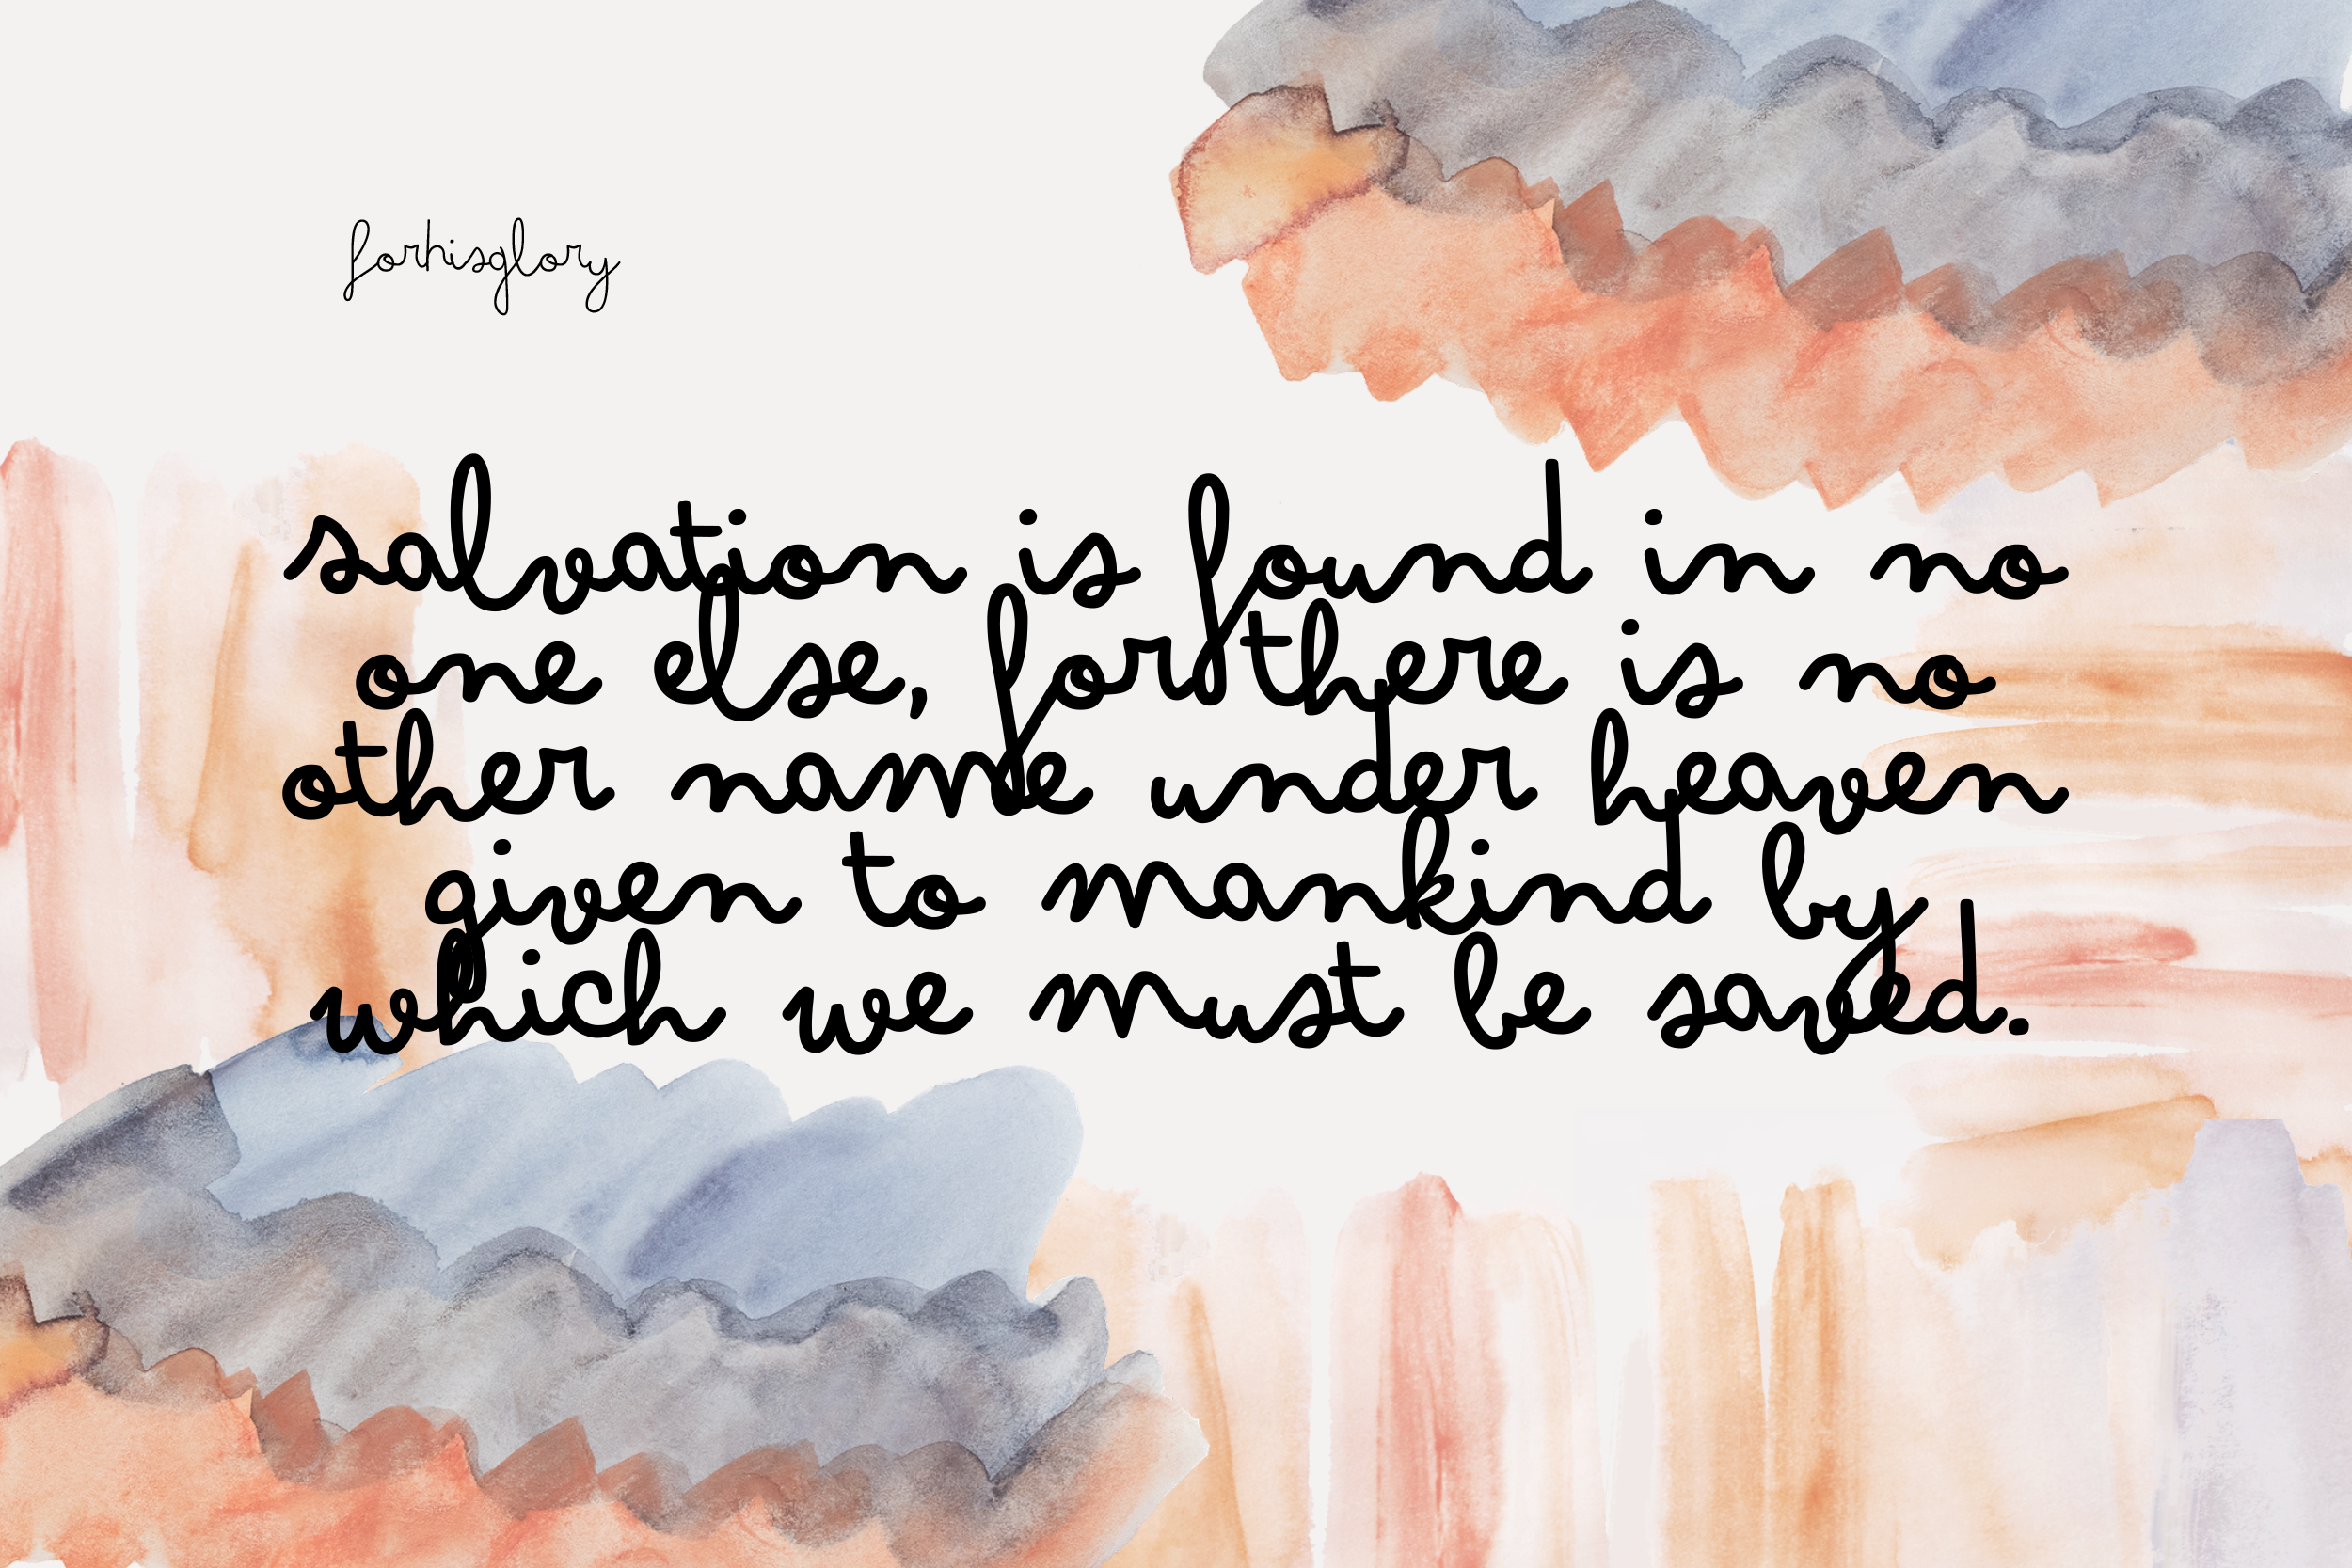 forhisglory
salvation is found in no
one else, for there is no
other name under heaven
given to mankind by
which we must be saved.